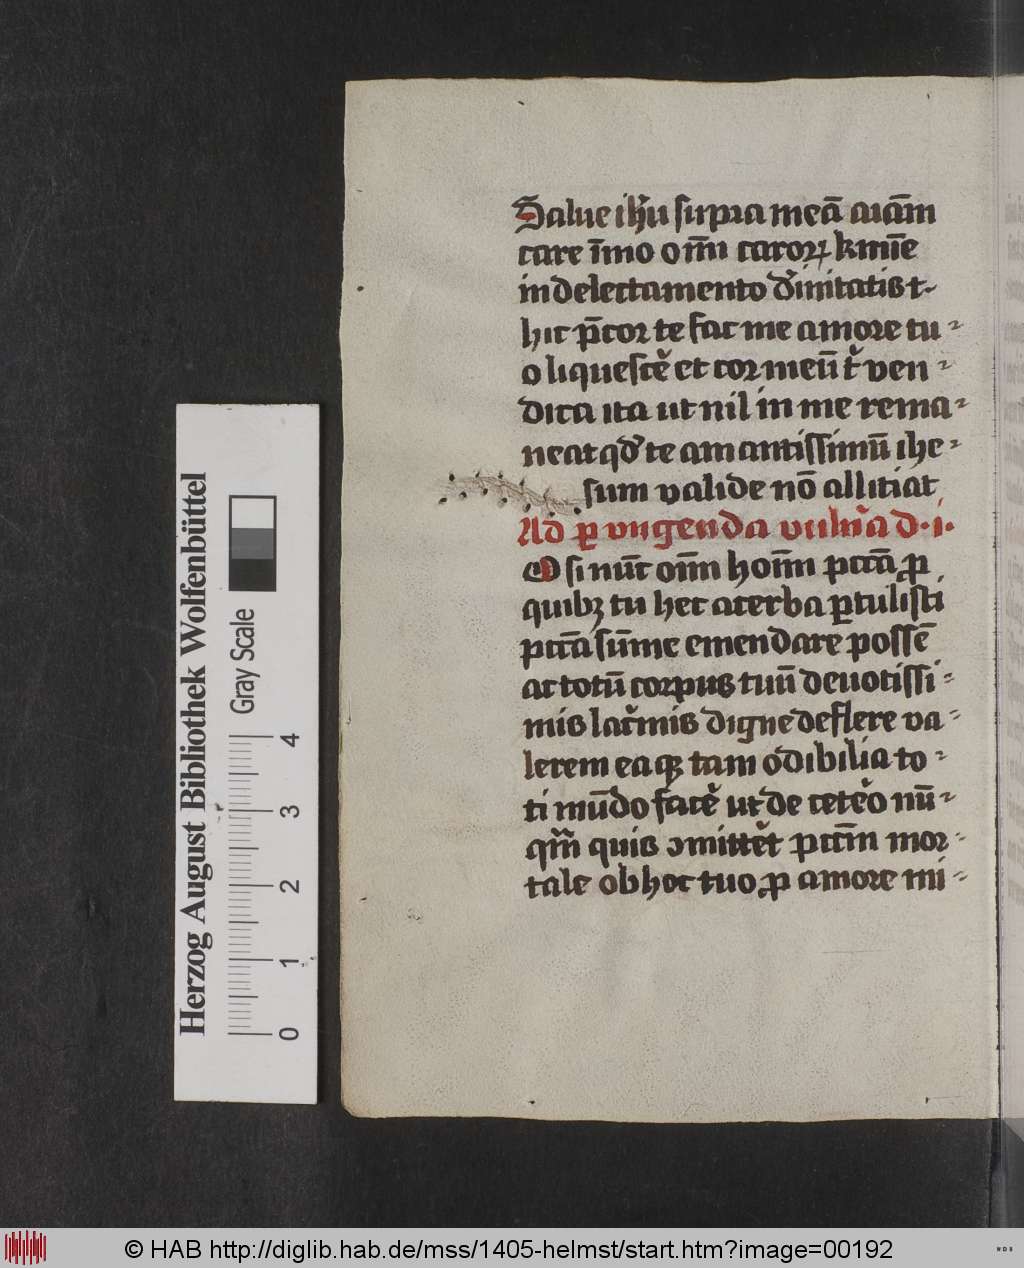 Salue ih̅u supra meā aīam
care īmo om̅i carorꝝ kmīe
in delectamento diuinitatis t
hic p̄cor te fac me amore tu⸗
o liquescē et cor meū t̉ ven⸗
dica ita ut nil in me rema⸗
neat qd̉ te amantissimū ihe⸗
sum valide nō allitiat
Ad ꝑ vngenda vuln̉a d· i·
O si nūc om̅i hom̅i pctā ꝓ
quibꝫ tu hec acerba ꝑtulisti
pctā sūme emendare possē
ac totū corpus tuū deuotissi⸗
mis lac̉mis digne deflere va⸗
lerem eaqꝫ tam odibilia to⸗
ti mūdo facē ut de cetēo nū⸗
qm̅ quis ↄmittēt pctm̅ mor⸗
tale ob hoc tuo ꝓ amore mi⸗
Herzog August Bibliothek Wolfenbüttel
Gray Scale
0 1 2 3 4
© HAB http://diglib.hab.de/mss/1405-helmst/start.htm?image=00192